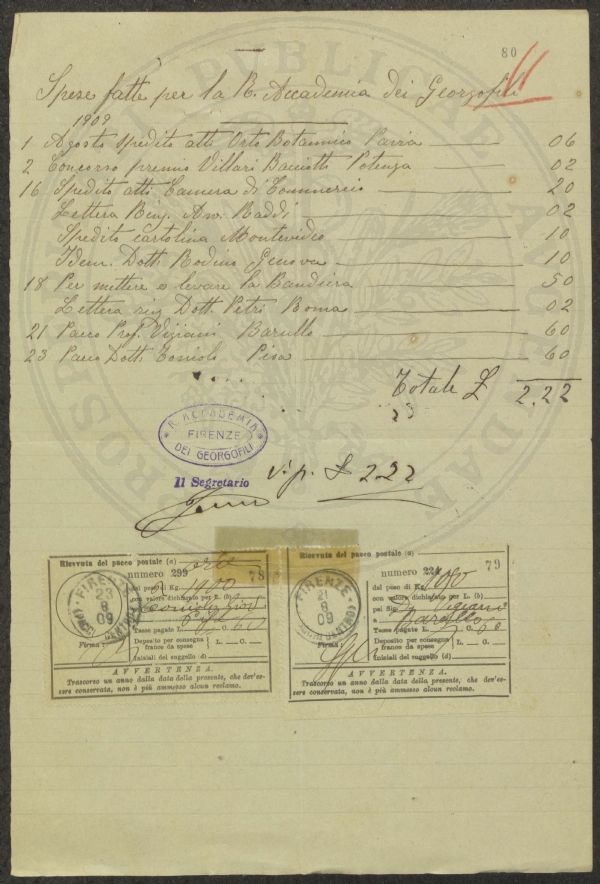 80
Spese fatte per la R. Accademia dei Georgofili
1909
1 Agosto Spedito atti Orto Botanico Pavia 06
2 Concorso premio Villari Potenza 02
16 Spedito atti Camera di Commercio 20
Lettera Avv. Raddi 02
Spedito cartolina Montevideo 10
Idem. Dott. Rodino Genova 10
18 Per mettere e levare la Bandiera 50
Lettera Dott. Petri Roma 02
21 Pacco Prof. Vigiani 60
23 Pacco Dott. Pisa 60
Totale £ 2,22
R. ACCADEMIA
FIRENZE
DEI GEORGOFILI
v. p. £ 2 22
Il Segretario
Ricevuta del pacco postale (a)
numero 299 78
del peso di Kg.
con valore dichiarato per L. (b)
Tasse pagate L. C. 60
Firma:
Deposito per consegna franco da spese L. C.
Iniziali del suggello (d)
FIRENZE
23
8
09
AVVERTENZA.
Trascorso un anno dalla data della presente, che dev'es-
sere conservata, non è più ammesso alcun reclamo.
Ricevuta del pacco postale (a)
numero 224 79
del peso di Kg.
con valore dichiarato per L. (b)
pel Sig. Vigiani
a
Tasse pagate L. C. 60
Firma:
Deposito per consegna franco da spese L. C.
Iniziali del suggello (d)
FIRENZE
21
8
09
AVVERTENZA.
Trascorso un anno dalla data della presente, che dev'es-
sere conservata, non è più ammesso alcun reclamo.